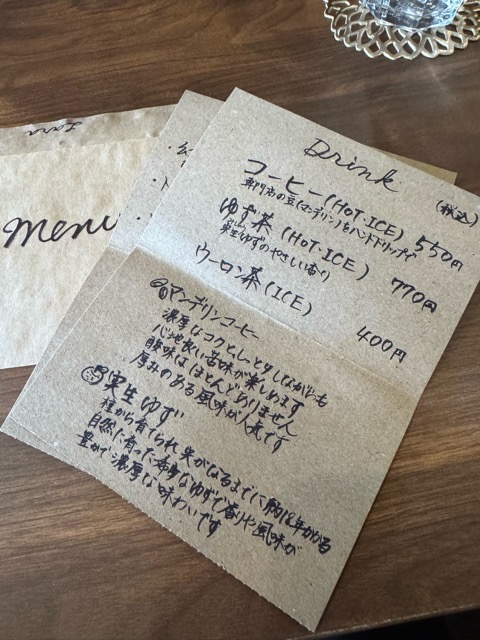 Lara
menu
Drink
(税込)
コーヒー(HOT・ICE) 550円
専門店の豆(マンデリン)をハンドドリップで
ゆず茶(HOT・ICE) 770円
実生ゆずのやさしい香り
ウーロン茶(ICE) 400円
マンデリンコーヒー
濃厚なコクとしっとりしながらも
心地良い苦味が楽しめます
酸味はほとんどありません
厚みのある風味が人気です
実生ゆず
種から育てられ実がなるまでに約18年かかる
自然に育った希少なゆずで香りや風味が
豊かで濃厚な味わいです